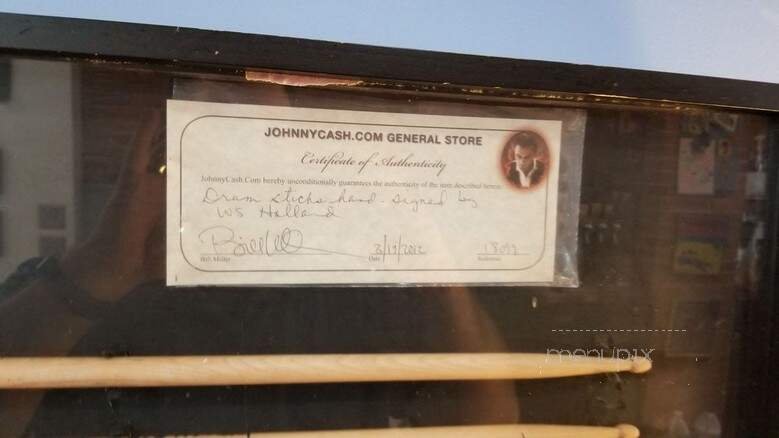 JOHNNYCASH.COM GENERAL STORE
Certificate of Authenticity
JohnnyCash.Com hereby unconditionally guarantees the authenticity of the item described herein:
Drum sticks hand-signed by
WS Holland
Bill Miller
Date
menupix